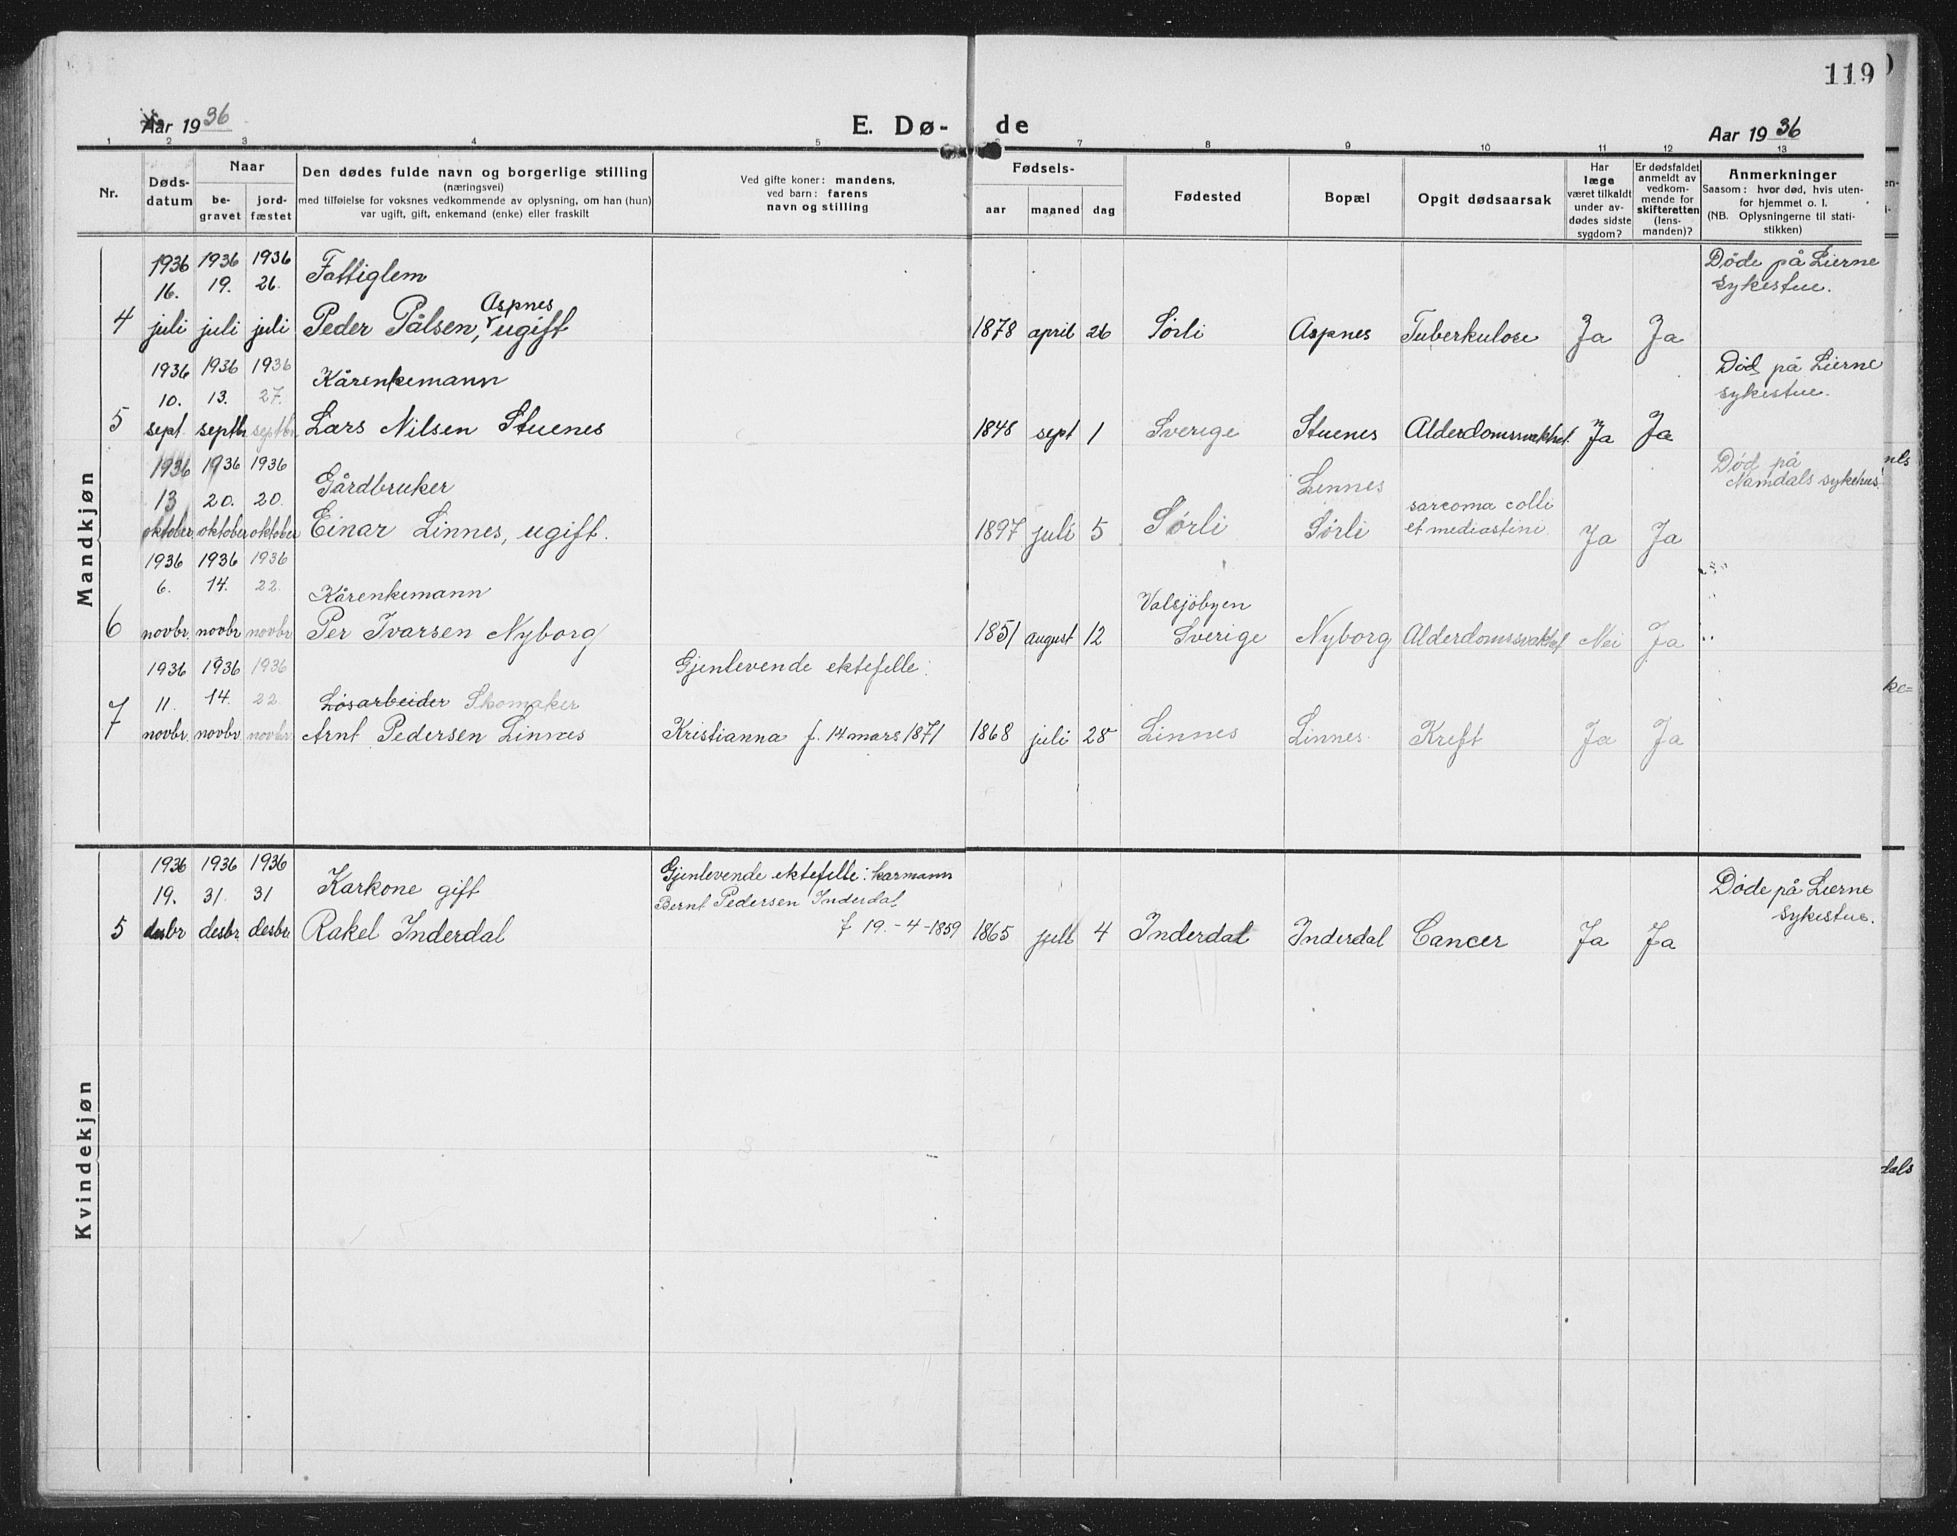 119
Aar 1936
E. Dø-de
Aar 1936
1 2 3 4 5 6 7 8 9 10 11 12 13
Nr.
Døds-
datum
Naar
be-
gravet
jord-
fæstet
Den dødes fulde navn og borgerlige stilling
(næringsvei)
med tilføielse for voksnes vedkommende av oplysning, om han (hun)
var ugift, gift, enkemand (enke) eller fraskilt
Ved gifte koner: mandens,
ved barn: farens
navn og stilling
Fødsels-
aar maaned dag
Fødested
Bopæl
Opgit dødsaarsak
Har
læge
været tilkaldt
under av-
dødes sidste
sygdom?
Er dødsfaldet
anmeldt av
vedkom-
mende for
skifteretten
(lens-
manden)?
Anmerkninger
Saasom: hvor død, hvis uten-
for hjemmet o. l.
(NB. Oplysningerne til stati-
stikken)
Mandkjøn
1936 1936 1936 Fattiglem Døde på Lierne
16. 19. 26. Aspnes sykestue.
4 juli juli juli Peder Pålsen, ugift 1878 april 26 Sørli Aspnes Tuberkulose Ja Ja
1936 1936 1936 Kårenkemann Død på Lierne
10. 13. 27. sykestue.
5 sept. septbr septbr Lars Nilsen Stuenes 1848 sept 1 Sverige Stuenes Alderdomssvakhet. Ja Ja
1936 1936 1936 Gårdbruker Linnes Død på
13 20. 20. sarcoma colli Namdals sykehus.
oktober oktober oktober Einar Linnes, ugift. 1897 juli 5 Sørli Sørli et mediastini Ja Ja
1936 1936 1936
6. 14. 22. Kårenkemann Valsjöbyen
6 novbr. novbr novbr Per Ivarsen Nyborg 1851 august 12 Sverige Nyborg Alderdomssvakhet Nei Ja
1936 1936 1936 Gjenlevende ektefelle:
11. 14. 22. Løsarbeider Skomaker
7 novbr. novbr novbr. Arnt Pedersen Linnes Kristianna f. 14 mars 1871 1868 juli 28 Linnes Linnes Kreft Ja Ja
Kvindekjøn
1936 1936 1936 Karkone gift Gjenlevende ektefelle: karmann Døde på Lierne
19. 31. 31 Bernt Pedersen Inderdal sykestue.
5 desbr desbr. desbr. Rakel Inderdal f 19.-4-1859 1865 juli 4 Inderdal Inderdal Cancer Ja Ja